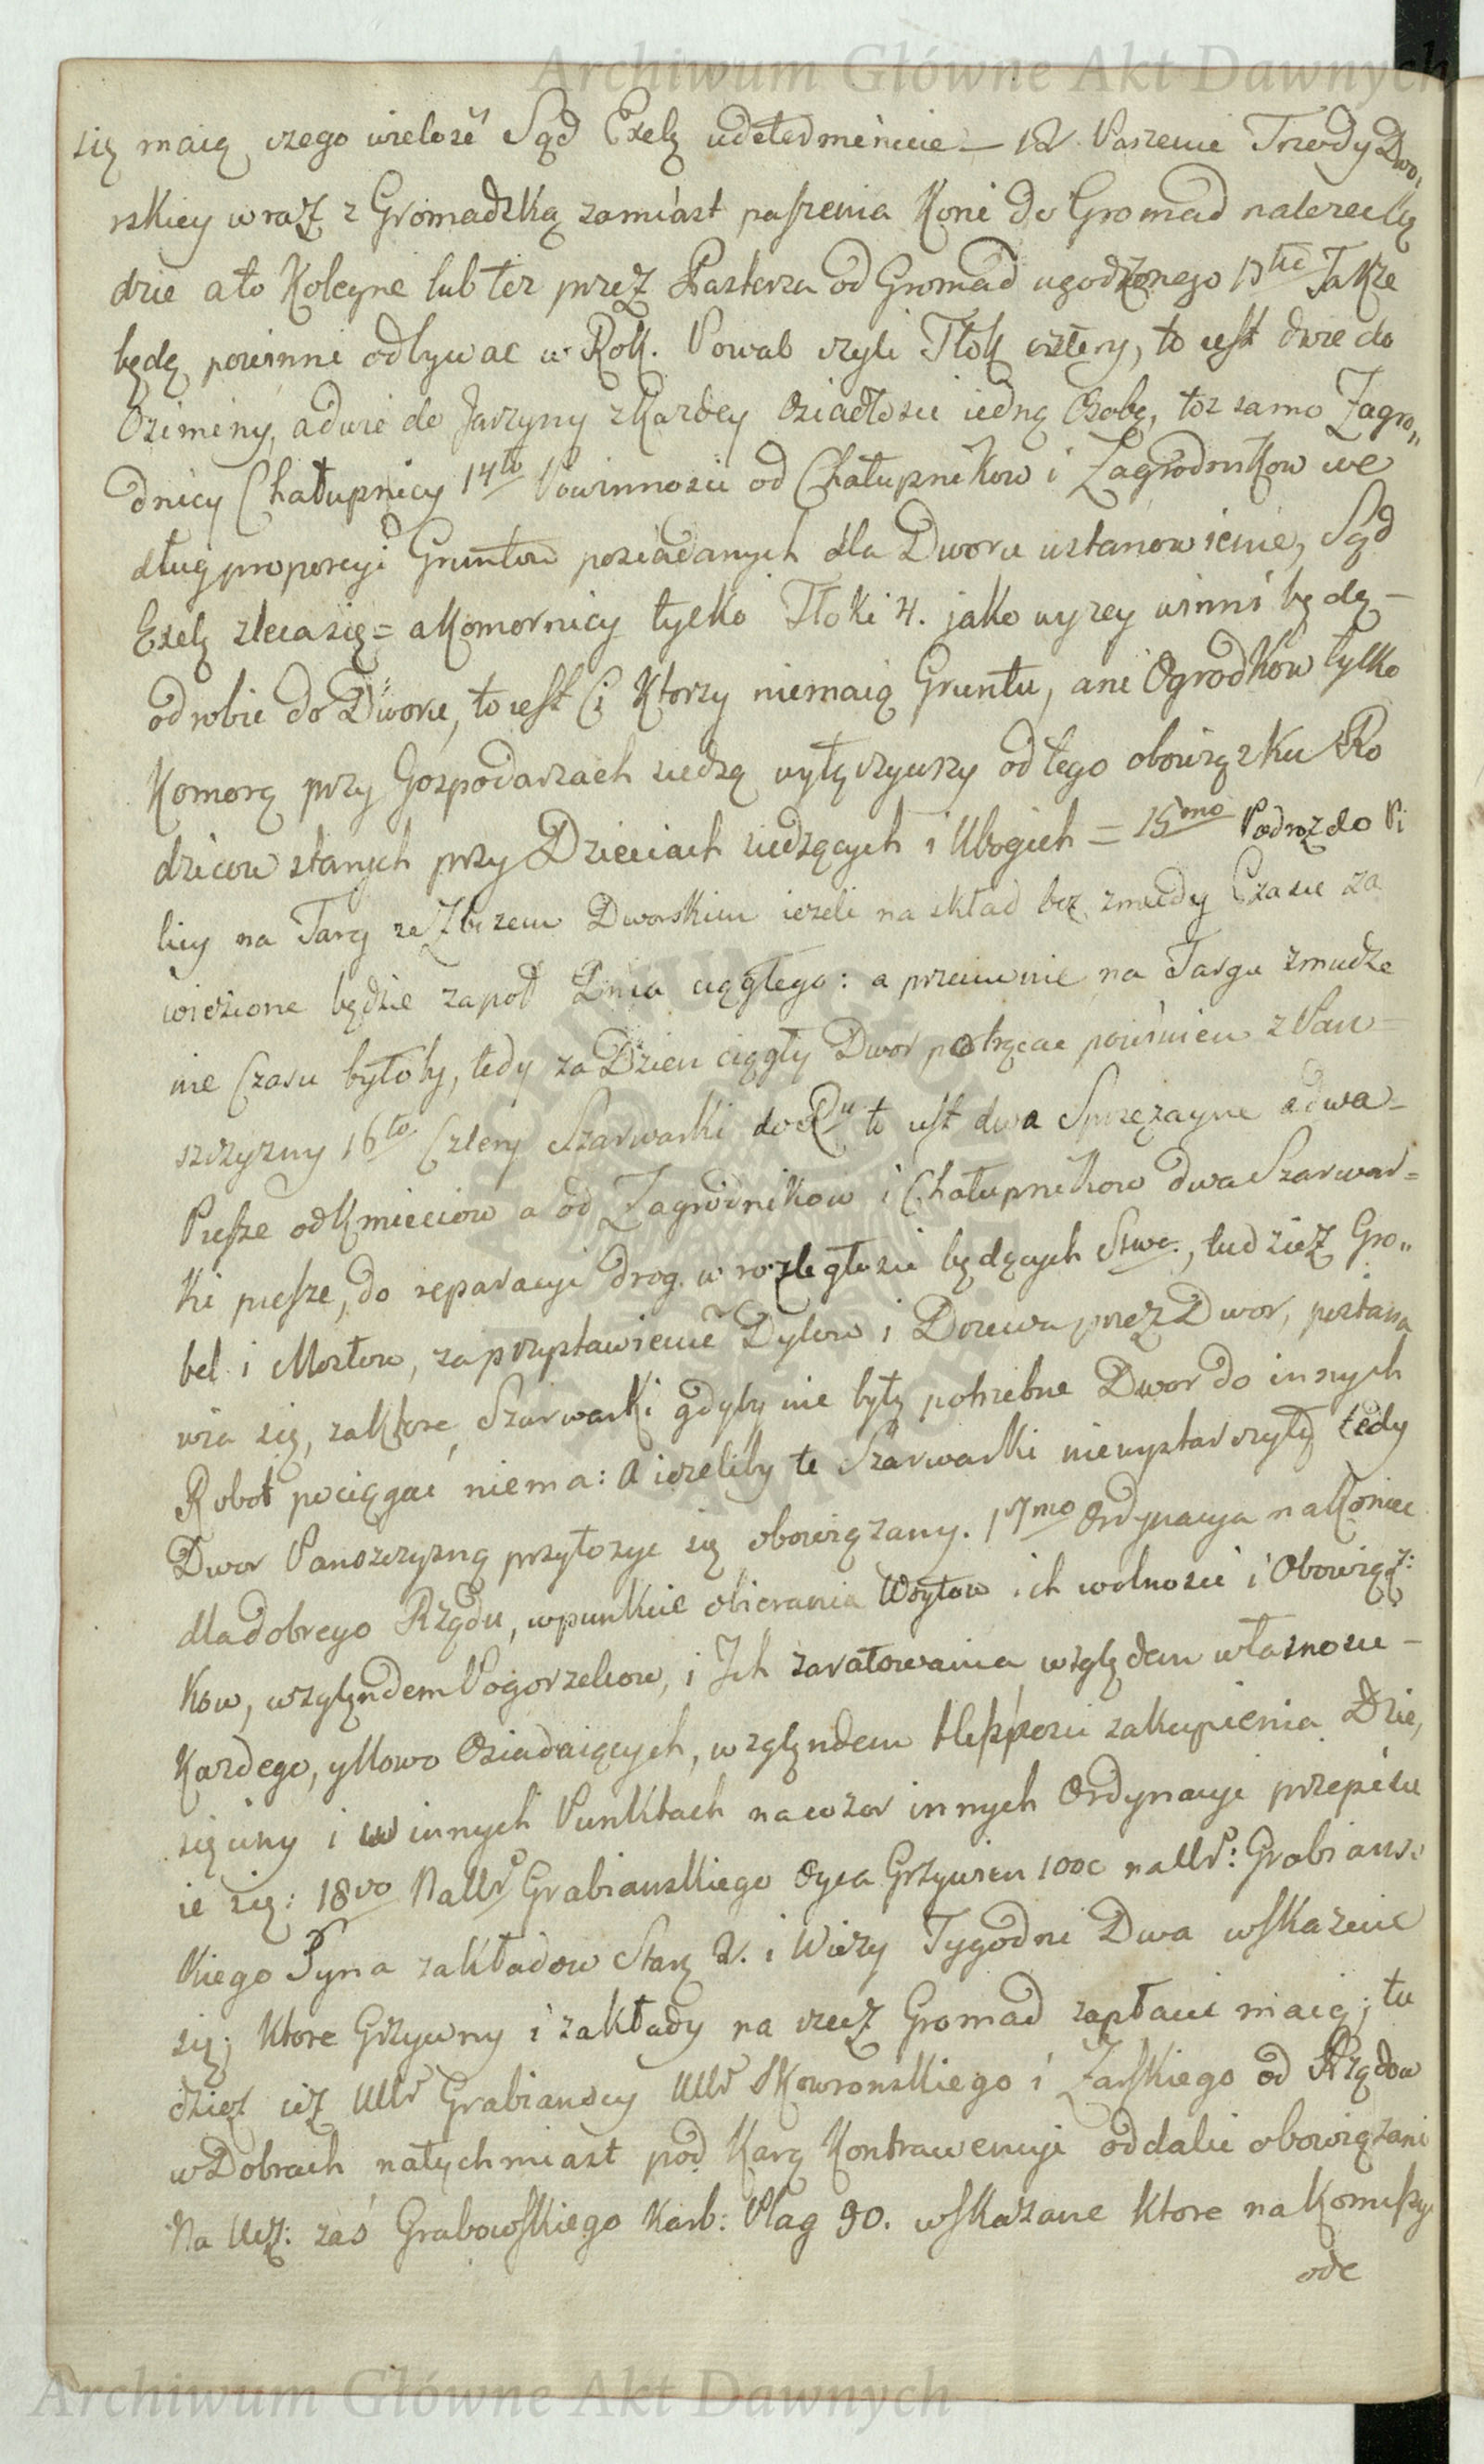 Archiwum Główne Akt Dawnych
się maią czego wielość Sąd Exelq udetermėnuie — 12 Paszenie Trzody Dwo„
rskiey wraz z Gromadzką zamiast paszenia Koni do Gromad nalezec bę
dzie a to Koleyne lub tez przez Pasterza od Gromad ugodzonego 13tio Takze
będą powinni odbywac w Rok. Powab czyli Tłok cztery, to iest dwie do
Oziminy, a dwie do Jarzyny z Kazdey Osiadłosci iedną Osobę, toz samo Zagro„
dnicy Chałupnicy 14to Powinnosci od Chałupnikow i Zagrodnikow we
dług proporcyi Gruntow posiadanych dla Dworu ustanowienie, Sąd
Exelq zleca się = a Komornicy tylko Tłoki 4. jako wyzey winni będą —
odrobic do Dworu, to iest Ci Ktorzy niemaią Gruntu, ani Ogrodkow tylko
Komorą przy Gospodarzach siedzą wyłączywszy od tego obowiązku Ro
dzicow starych przy Dzieciach siedzących i Ubogich = 15mo Podroz do Pi
licy na Targ ze Zbozem Dworskim iezeli na skład bez zmudy Czasu za
wiezione będzie zapoł Dnia ciągłego: a przeciwnie na Targu zmudze
nie Czasu byłoby, tedy za Dzien ciągły Dwor potrącac powinien z Pan=
szczyzny 16to Cztery Szarwarki do Ru to iest dwa Sprzęzayne a dwa —
Piesze od Kmieciow a od Zagrodnikow i Chałupnikow dwa Szarwar=
ki piesze, do reparacyi drog w rozległosci będących Stwo., tudziez Gro„
bel i Mostow, za przystawienie Dylow i Drzewa przez Dwor, postana
wia się, zaktore Szarwarki gdyby nie były potrzebne Dwor do innych
Robot pociągać niema: A iezeliby te Szarwarki niewystarczyły tedy
Dwor Panszczyzną przyłozyc się obowiązany. 17mo Ordynacya nakoniec
dla dobrego Rządu, w punkcie obierania Woytow ich wolnosci i Obowiąz:
kow, względem Pogorzelcow, i Ich zaratowania względem własnosci —
Kazdego, y Nowo Osiadaiących, względem zakupienia Dzie„
sięciny i w innych Punktach na wzor innych Ordynacyi przepisu
ie się: 18vo Na Ur Grabianskiego Oyca Grzywien 100 na Ur: Grabians„
kiego Syna zakładow Starą 2. i Wiezy Tygodni Dwa wskazuie
się; Ktore Grzywny i zakłady na rzecz Gromad zapłacić maią; tu
dziez iz UUr Grabianscy UUr Skowronskiego i Zarskiego od Rządow
w Dobrach natychmiast pod Karą Kontrawencyi oddalic obowiązani
Na Ucz: zaś Grabowskiego Karb: Plag 90. wskazane Ktore na Komissyi
ode
Archiwum Główne Akt Dawnych